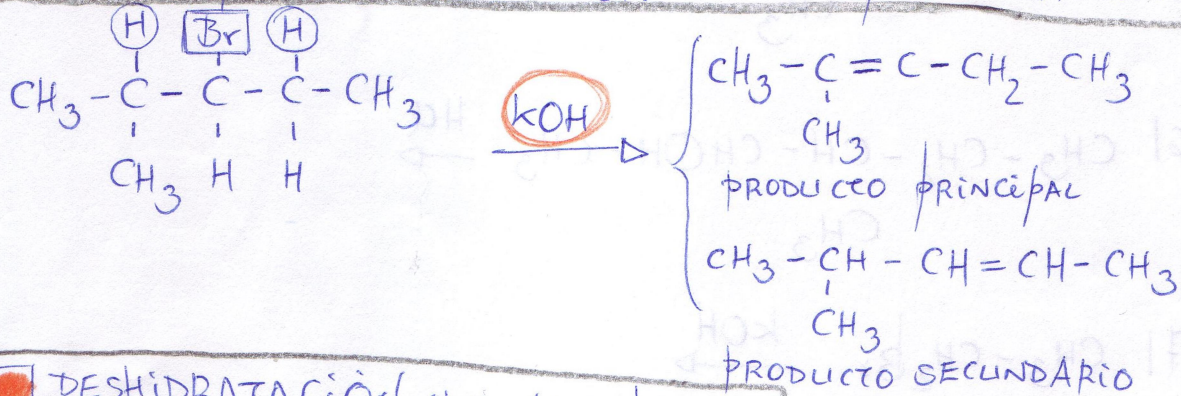 H Br H
CH3 - C - C - C - CH3
CH3 H H
KOH
CH3 - C = C - CH2 - CH3
CH3
PRODUCTO PRINCIPAL
CH3 - CH - CH = CH - CH3
CH3
PRODUCTO SECUNDARIO
DESHIDRATACIÓN